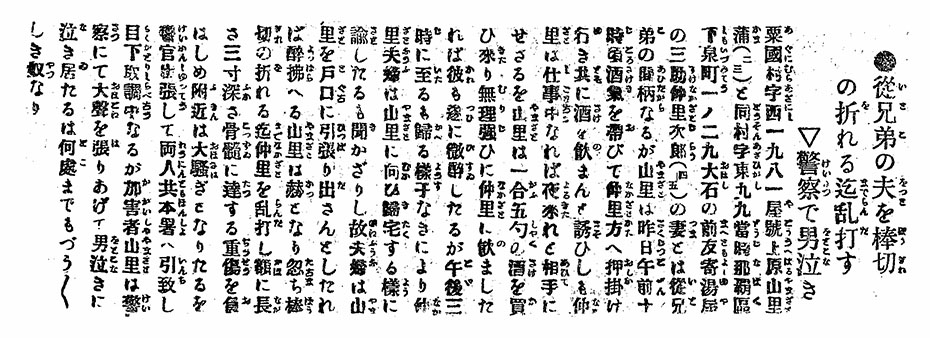 ●從兄弟の夫を棒切
の折れる迄乱打す
▽警察で男泣き
粟國村字西一九八一屋號上原山里
蒲(二三)と同村字東九九當時那覇區
下泉町一ノ二九大石の前友寄湯屋
の三助仲里次郎(四五)の妻とは從兄
弟の間柄なるが山里は昨日午前十
時頃酒氣を帶びて仲里方へ押掛け
行き共に酒を飲まんと誘ひしも仲
里は仕事中なれば夜來れと相手に
せざるを山里は一合五勺の酒を買
ひ來り無理強ひに仲里に飲ました
れば彼も遂に酩酊したるが午後三
時に至るも歸る樣子なきにより仲
里夫婦は山里に向ひ歸宅する樣に
諭したるも聞かざりし故夫婦は山
里を戸口に引張り出さんとしたれ
ば醉拂へる山里は赫となり忽ち棒
切の折れる迄仲里を乱打し額に長
さ三寸深さ骨髓に達する重傷を負
はしめ附近は大騒ぎとなりたるを
警官出張して両人共本署へ引致し
目下取調中なるが加害者山里は警
察にて大聲を張りあげて男泣きに
泣き居たるは何處までもづう〱
しき奴なり